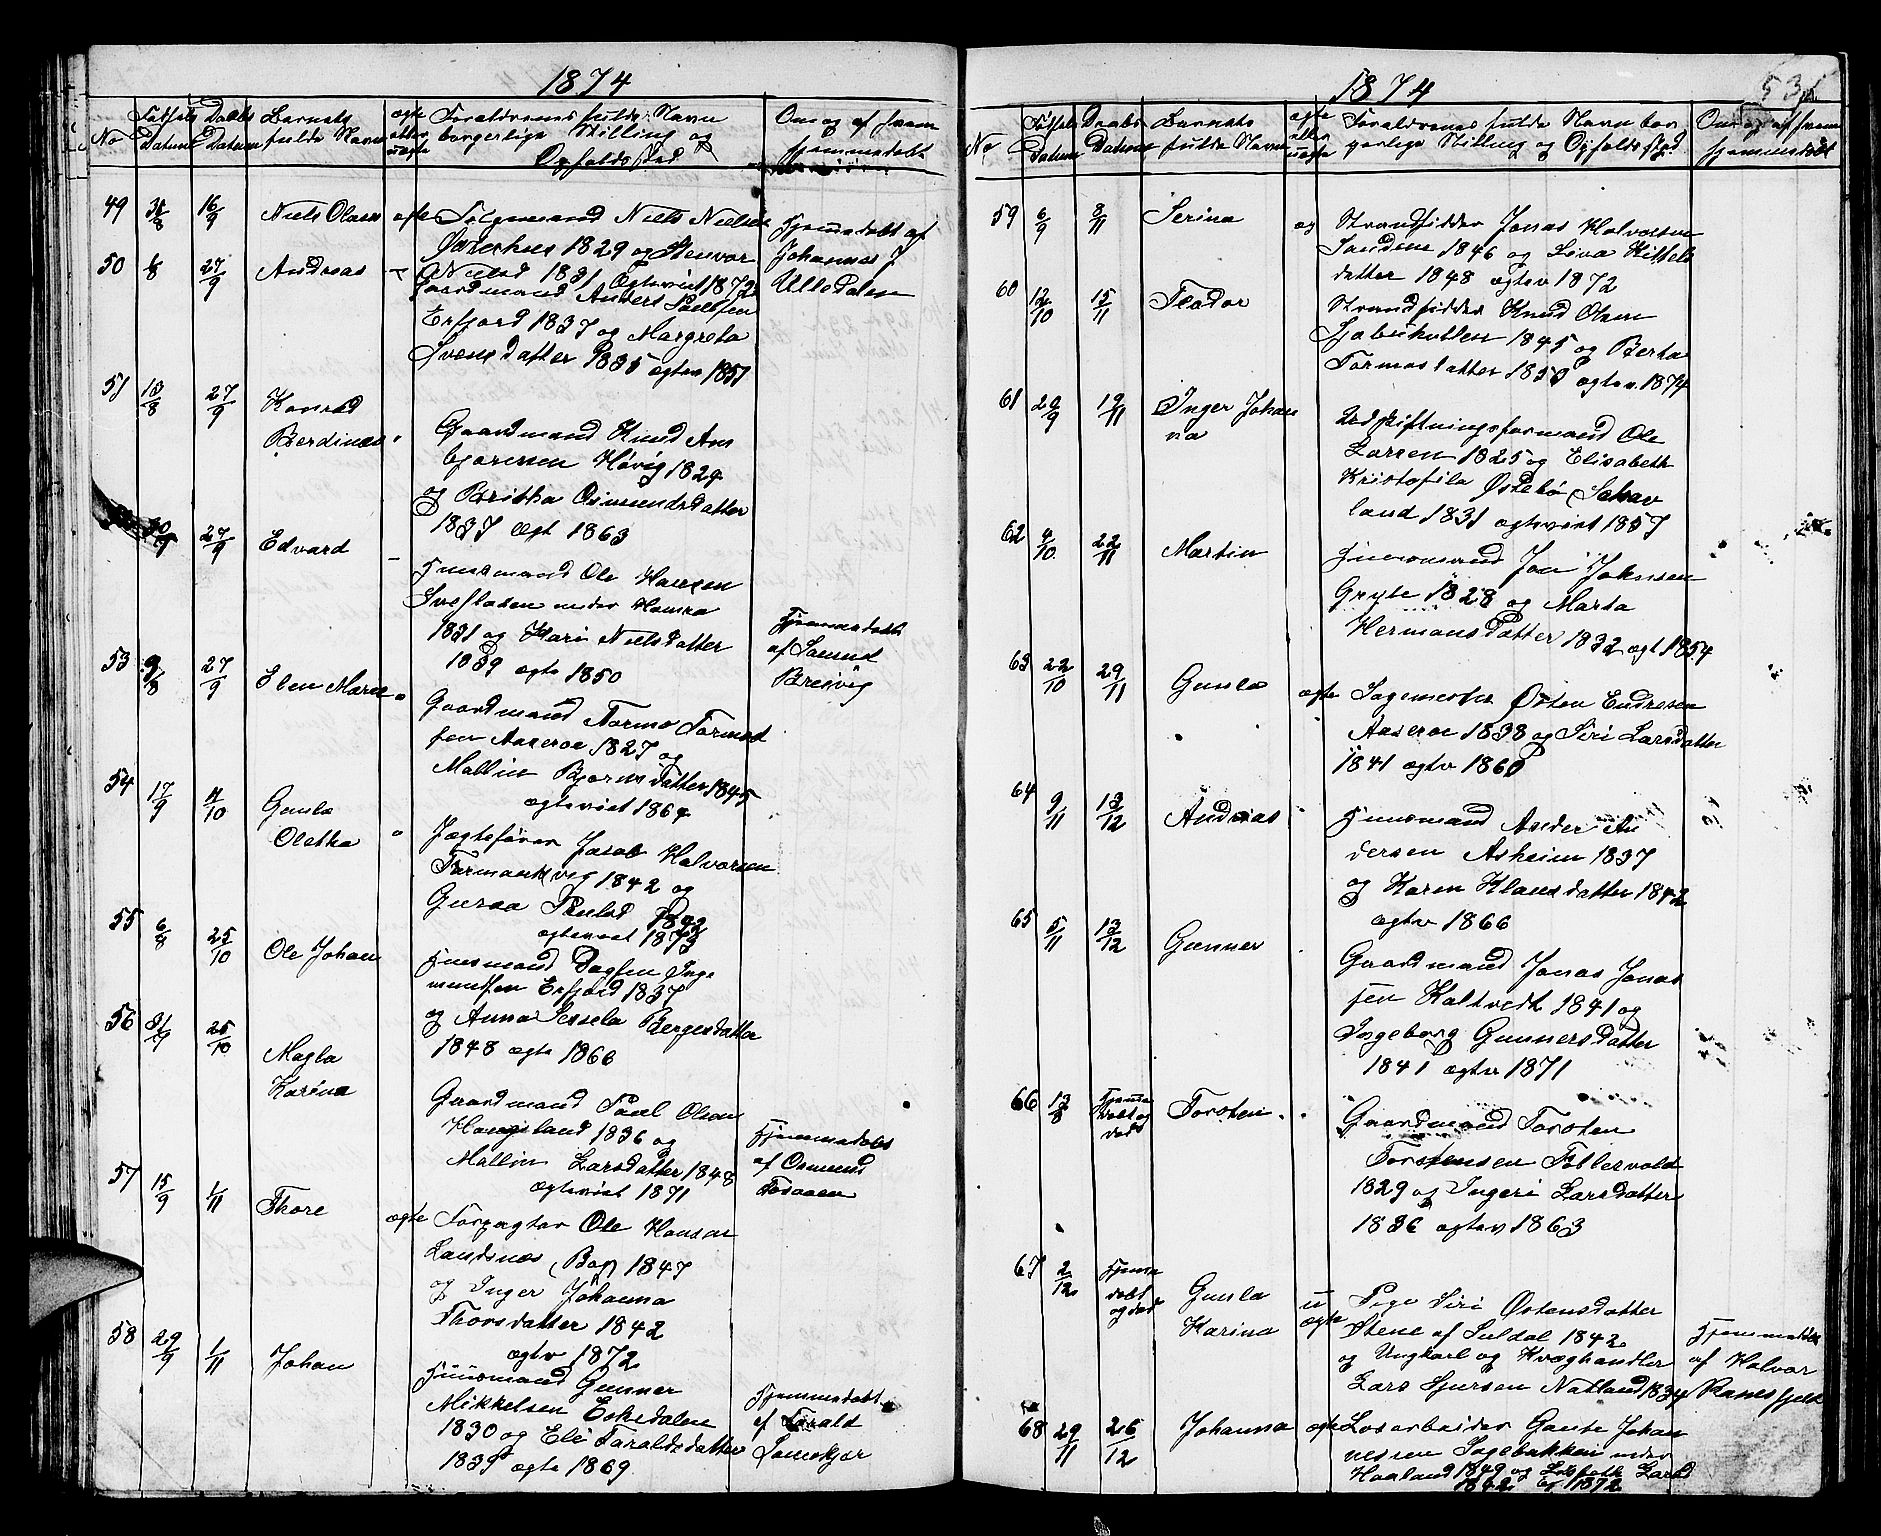 1874
No
Fødsels Datum
Daabs Datum
Barnets fulde Navn
egte eller uegte
Foreldrenes fulde Navn
borgerlige Stilling og
Opholdssted
Om og af hvem
hjemmedøbt
49 31/8 16/9 Niels Olaus egte Selgemand Niels Nielsen
1829 og Steinvor
Nielsd 1831 Egteviet 1872
Hjemmedøbt af
Johannes J
Ulledalen
50 1/8 27/9 Andreas - Gaardmand Anders Paulsen
Erfjord 1837 og Margreta
Svensdatter 1835 egtev 1857
51 13/8 27/9 Konrad
Berdines " Gaardmand Knud Asbjørnsen
Høvig 1829
og Britha Osmundsdatter
1837 egt 1863
27/9 Edvard - Huusmand Ole Hansen
under Hamra
1821 og Kari Nielsdatter
1839 egte 1850
Hjemmedøbt
af Lauend
Breivig
53 9/8 27/9 Elen Marie " Gaardmand Tormo Tormod
sen Aaserøe 1827 og
Mallin Bjornsdatter 1845
egteviet 1864
54 17/9 11/10 Gunla
Olethea " Jægtefører Jacob Halvorsen
1842 og
Guroa Paulsd 1842
egteviet 1873
55 6/8 25/10 Ole Johan Huusmand Dagfin Inge
mundsen Erfjord 1837
og Anna Sessela Bergesdatter
1848 egte 1866
56 31/9 25/10 Magla
Karina Gaardmand Paul Olsen
Haugeland 1836 og
Mallin Larsdatter 1848
egteviet 1871
Hjemmedøbt
af Osmund
57 15/9 1/11 Thore egte Forpagter Ole Hansen
Landsnæs 1847
og Inger Johanna
Thorsdatter 1842
egtv 1872
58 29/9 1/11 Johan Huusmand Gunner
Mikkelsen Eskedalen
1830 og Eli Taraldsdatter
1839 egte 1869
Hjemmedøbt
af Tarald
1874
No
Fødsels Datum
Daabs Datum
Barnets fulde Navn
egte eller uegte
Foreldrenes fulde Navn bor
gerlige Stilling og Opholdssted
Om og af hvem
hjemmedøbt
59 6/9 8/11 Serina eg Strandsidder Jonas Halvorsen
Sandene 1846 og Siva Kittels
datter 1848 egtev 1872
60 12/10 15/11 Teodor Strandsidder Knud Olsen
1845 og Berta
Tormosdatter 1850 egtev. 1874
61 29/9 19/11 Inger Johan
na Udskiftningsformand Ole
Larsen 1825 og Elisabeth
Kristofila Østebø
land 1831 egteviet 1857
62 4/10 22/11 Martin Huusmand Jon Johnsen
Gryte 1828 og Marta
Hermansdatter 1832 egt 1854
63 22/10 29/11 Gunla egte Sagemester Østen Endresen
Aaserøe 1838 og Siri Larsdatter
1841 egtv 1860
64 9/11 13/12 Andreas Huusmand Ander An
dersen Asheim 1837
og Karen Klausdatter 1842
egtv 1866
65 5/11 13/12 Gunner Gaardmand Jonas Jonas
sen Kaltvedt 1841 og
Ingeborg Gunnersdatter
1841 egtv 1871
66 13/8 Hjemme
døbt og
død Torsten Gaardmand Torsten
Torstensen Tøllervold
1829 og Ingeri Larsdatter
1836 egtev 1863
67 2/12 Hjemme
døbt
og død Gunla
Karina u
egte Pige Siri Østensdatter
Stene af Suldal 1842
og Ungkarl og Kvæghandler
Lars Sjursen Natland 1834
Hjemmedøbt
af Halvor
68 29/11 26/12 Johanna egte Løsarbeider Gaute Johan
nessen Ingebakken under
Haaland 1849 og Larsd
1842 eg 1872